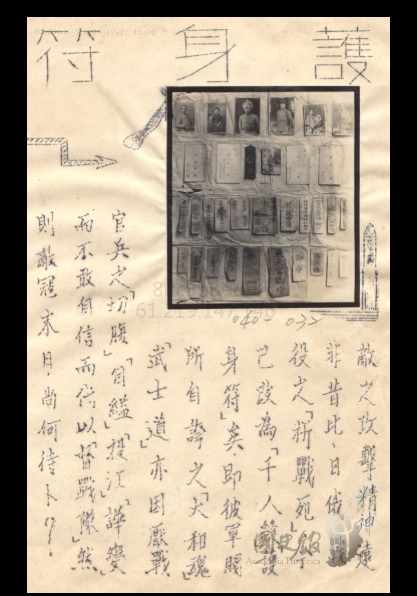 護身符
敵之攻擊精神遠
非昔比、日俄戰
役之「祈戰死」
已設為「千人縫護
身符」矣即彼軍閥
所自誇之「大和魂」
「武士道」亦因厭戰
官兵之「切腹」「自縊」「投江」「譁變」
而不敢自信而信以「督戰隊」然
則敵寇末日尚何待卜?
040-032
61.219.147.146
國史館
Academia Historica